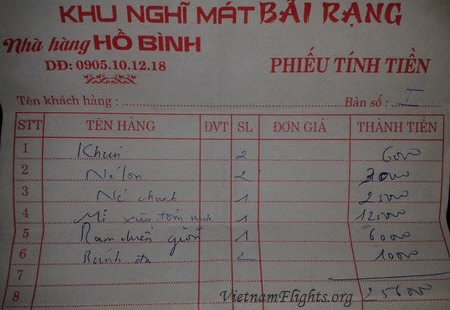 KHU NGHĨ MÁT BÃI RẠNG
Nhà hàng HỒ BÌNH
DĐ: 0905.10.12.18
PHIẾU TÍNH TIỀN
Tên khách hàng : Bàn số : I
STT TÊN HÀNG ĐVT SL ĐƠN GIÁ THÀNH TIỀN
1 Khăn 2 6000
2 2
3 Né chanh 1
4 Mì xào tôm 1
5 Ram chiên giòn 1 60000
6 Bánh đa 2 10000
7
8
VietnamFlights.org